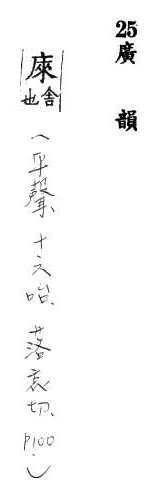 25 廣韻
庲 舍也 (平聲.十六咍.落哀切.P100.)